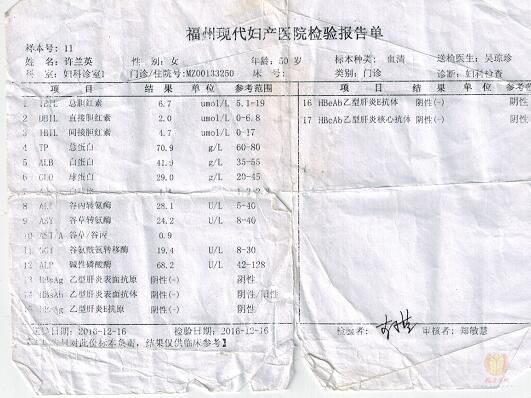 福州现代妇产医院检验报告单
样本号: 11
姓 名: 许兰英 性 别: 女 年龄: 50 岁 标本种类: 血清 送检医生: 吴琼珍
科 室: 妇科诊室1 门诊/住院号:MZ00133250 床 号: 类别: 门诊 诊断: 妇科检查
项 目 结 果 单 位 参考范围 项 目 结 果 单 位 参考范围
1 TBIL 总胆红素 6.7 umol/L 5.1-19 16 HBeAb乙型肝炎E抗体 阴性(-) 阴性
2 DBIL 直接胆红素 2.0 umol/L 0-6.8 17 HBcAb乙型肝炎核心抗体 阴性(-) 阴性
3 IBIL 间接胆红素 4.7 umol/L 0-17
4 TP 总蛋白 70.9 g/L 60-80
5 ALB 白蛋白 41.9 g/L 35-55
6 GLO 球蛋白 29.0 g/L 20-45
7
8 ALT 谷丙转氨酶 28.1 U/L 5-40
9 AST 谷草转氨酶 24.2 U/L 8-40
10 AST/A 谷草/谷丙 0.9
11 GGT 谷氨酰氨转移酶 19.4 U/L 8-30
12 ALP 碱性磷酸酶 68.2 U/L 42-128
13 HBsAg 乙型肝炎表面抗原 阴性(-) 阴性
14 HBsAb 乙型肝炎表面抗体 阴性(-) 阴性/阳性
15 HBeAg 乙型肝炎E抗原 阴性(-) 阴性
送检日期: 2016-12-16 检验日期: 2016-12-16 检验者: 审核者: 郑敏慧
对此份标本负责, 结果仅供临床参考】